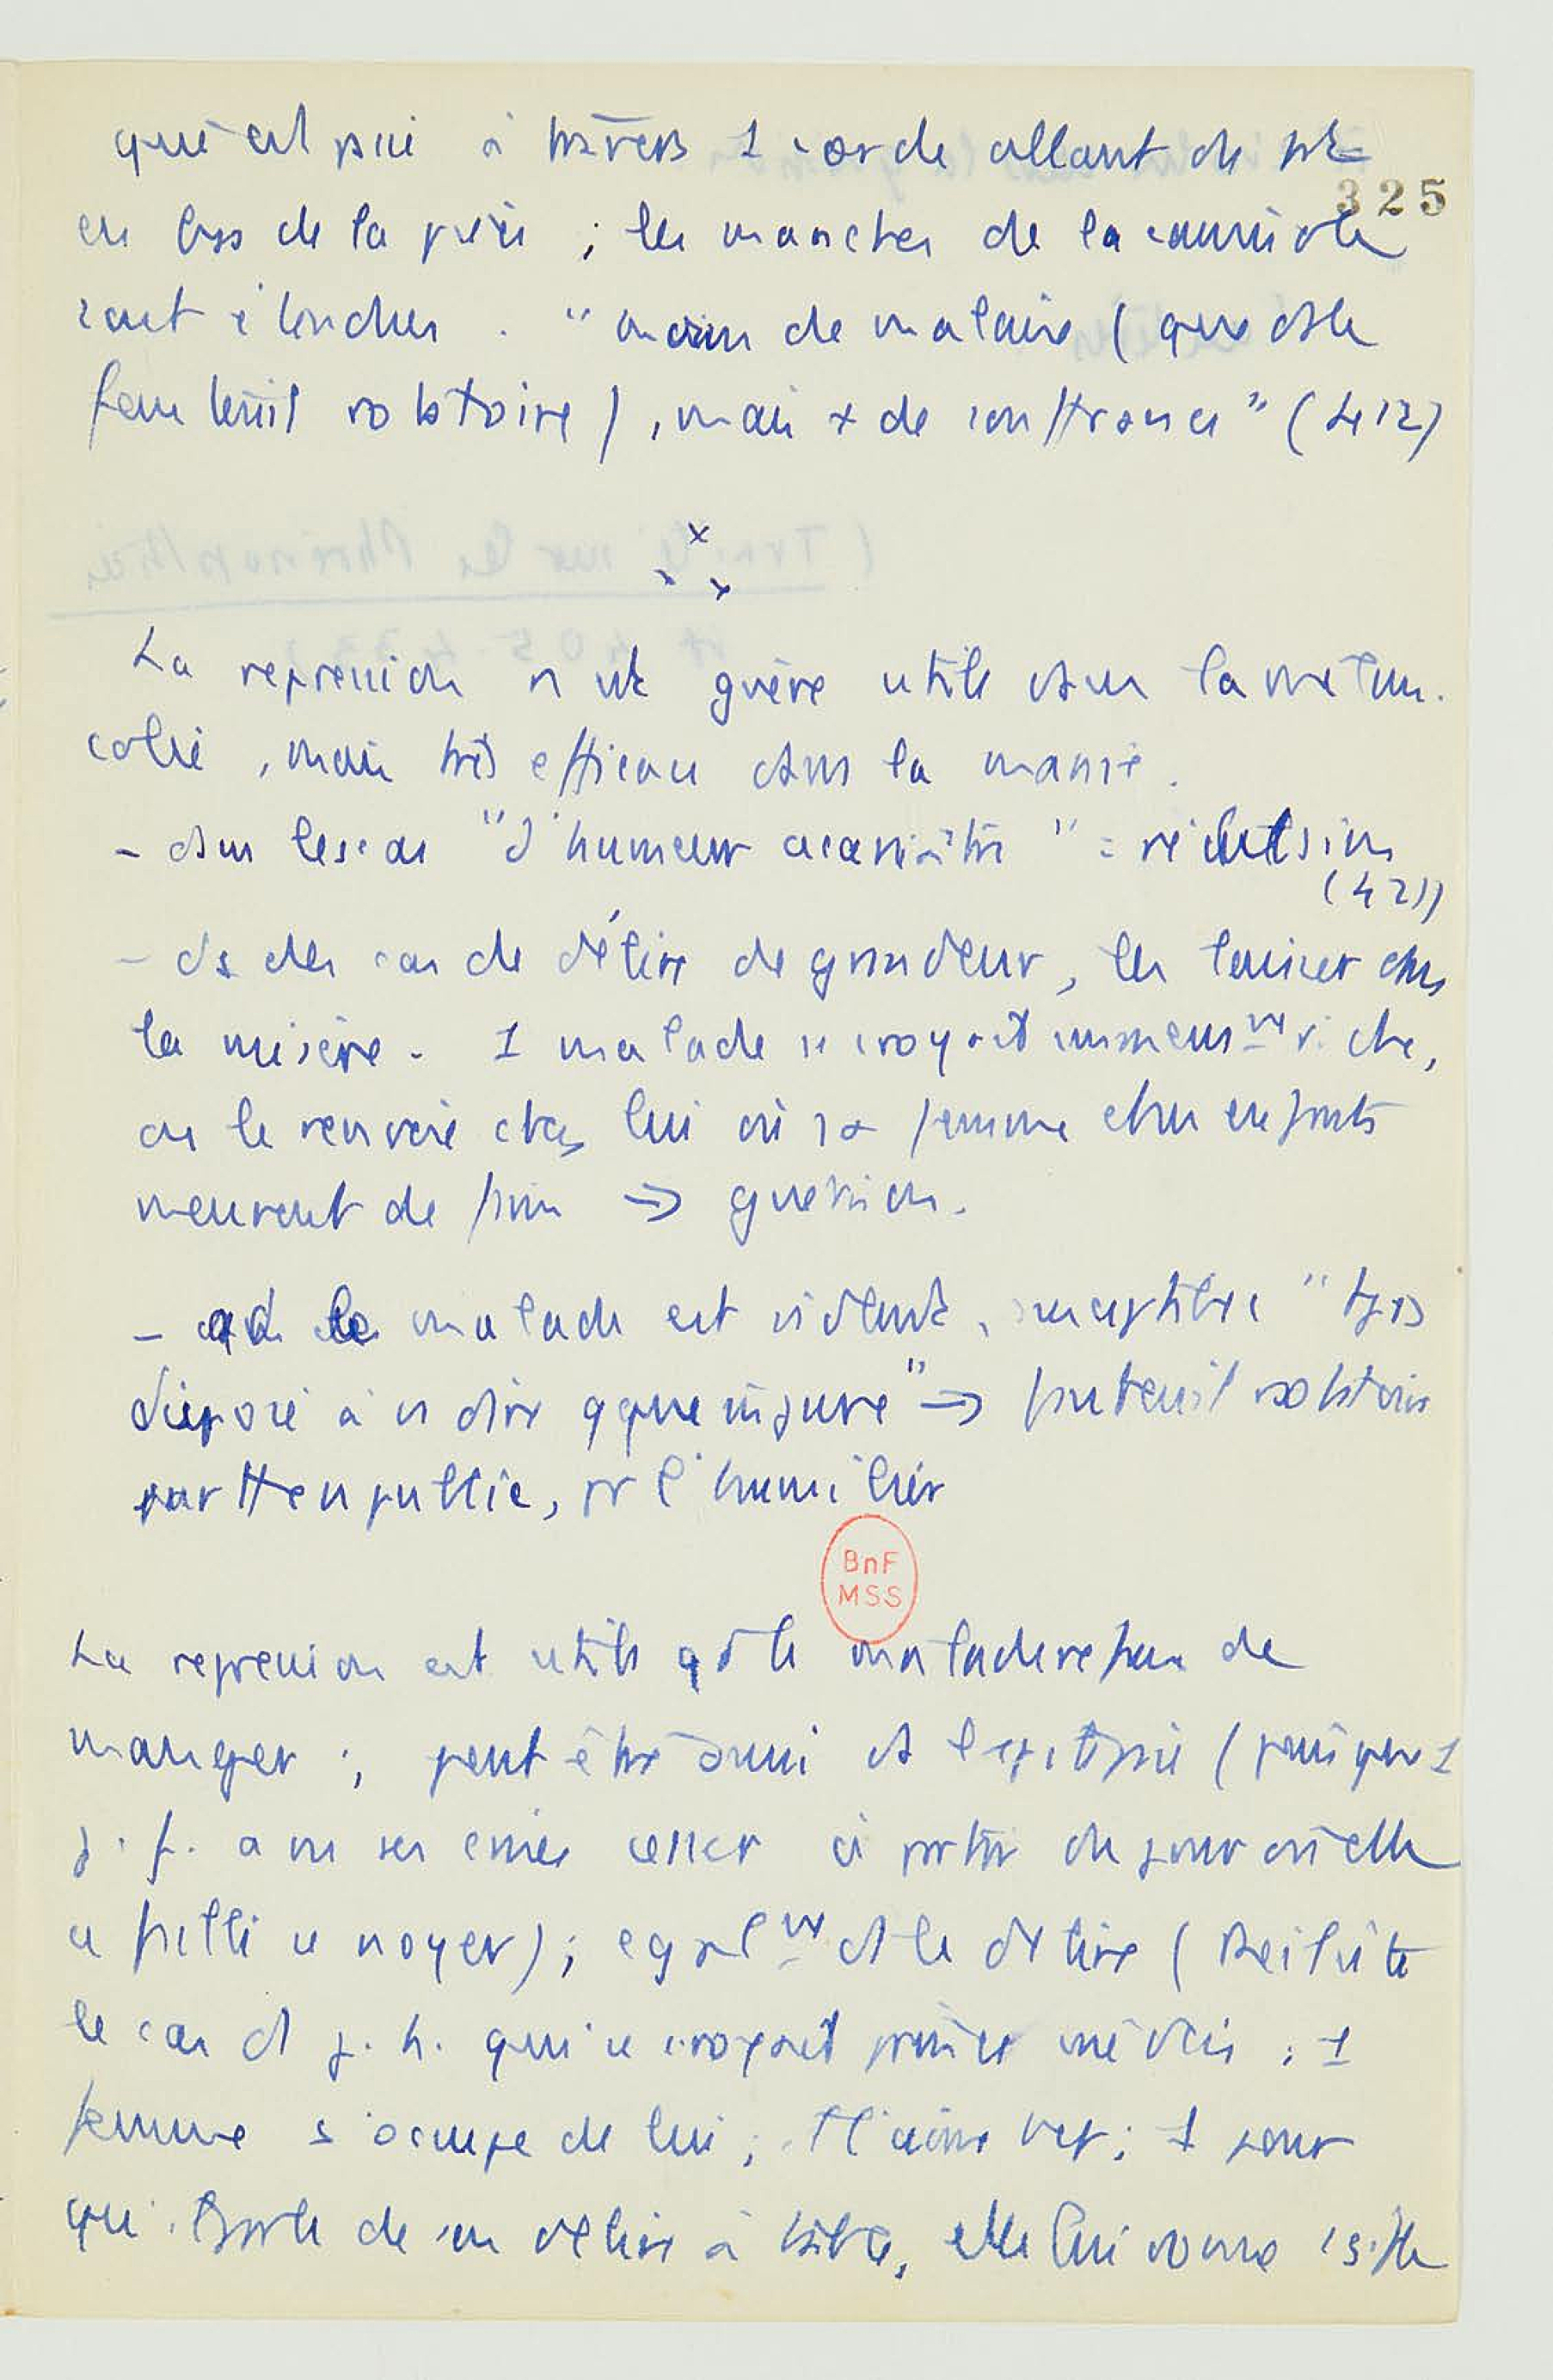 qui est prise à travers 1 corde allant de ht
325
en bas de la pièce ; les manches de la camisole
sont étendues. "moins de malaise (que ds le
fauteuil rotatoire), mais + de souffrance" (412)
x
x x
La repression n'est guère utile dans la mélan-
colie, mais très efficace dans la manie.
- dans les cas "d'humeur acariâtre" : réclusion
(421)
- ds des cas de délire de grandeur, les laisser dans
la misère. 1 malade se croyait immensmt riche,
on le renvoie chez lui où sa femme et ses enfants
meurent de faim => guérison.
- qd le malade est violent, susceptible "très
disposé à vs dire qque injure" -> fauteuil rotatoire
par tt en public, pr l'humilier
BnF
MSS
La repression est utile qd le malade refuse de
manger ; peut-être aussi ds l'epilepsie (puisque 1
j. f. a vu ses crises cesser à partir du jour où elle
a failli se noyer) ; egalmt ds le délire (
le cas d'1 j. h. qui se croyait prince ; 1
femme s'occupe de lui ; il l'aime ; 1 jour
qu'il parle de son délire à table, elle lui donne 1 gifle